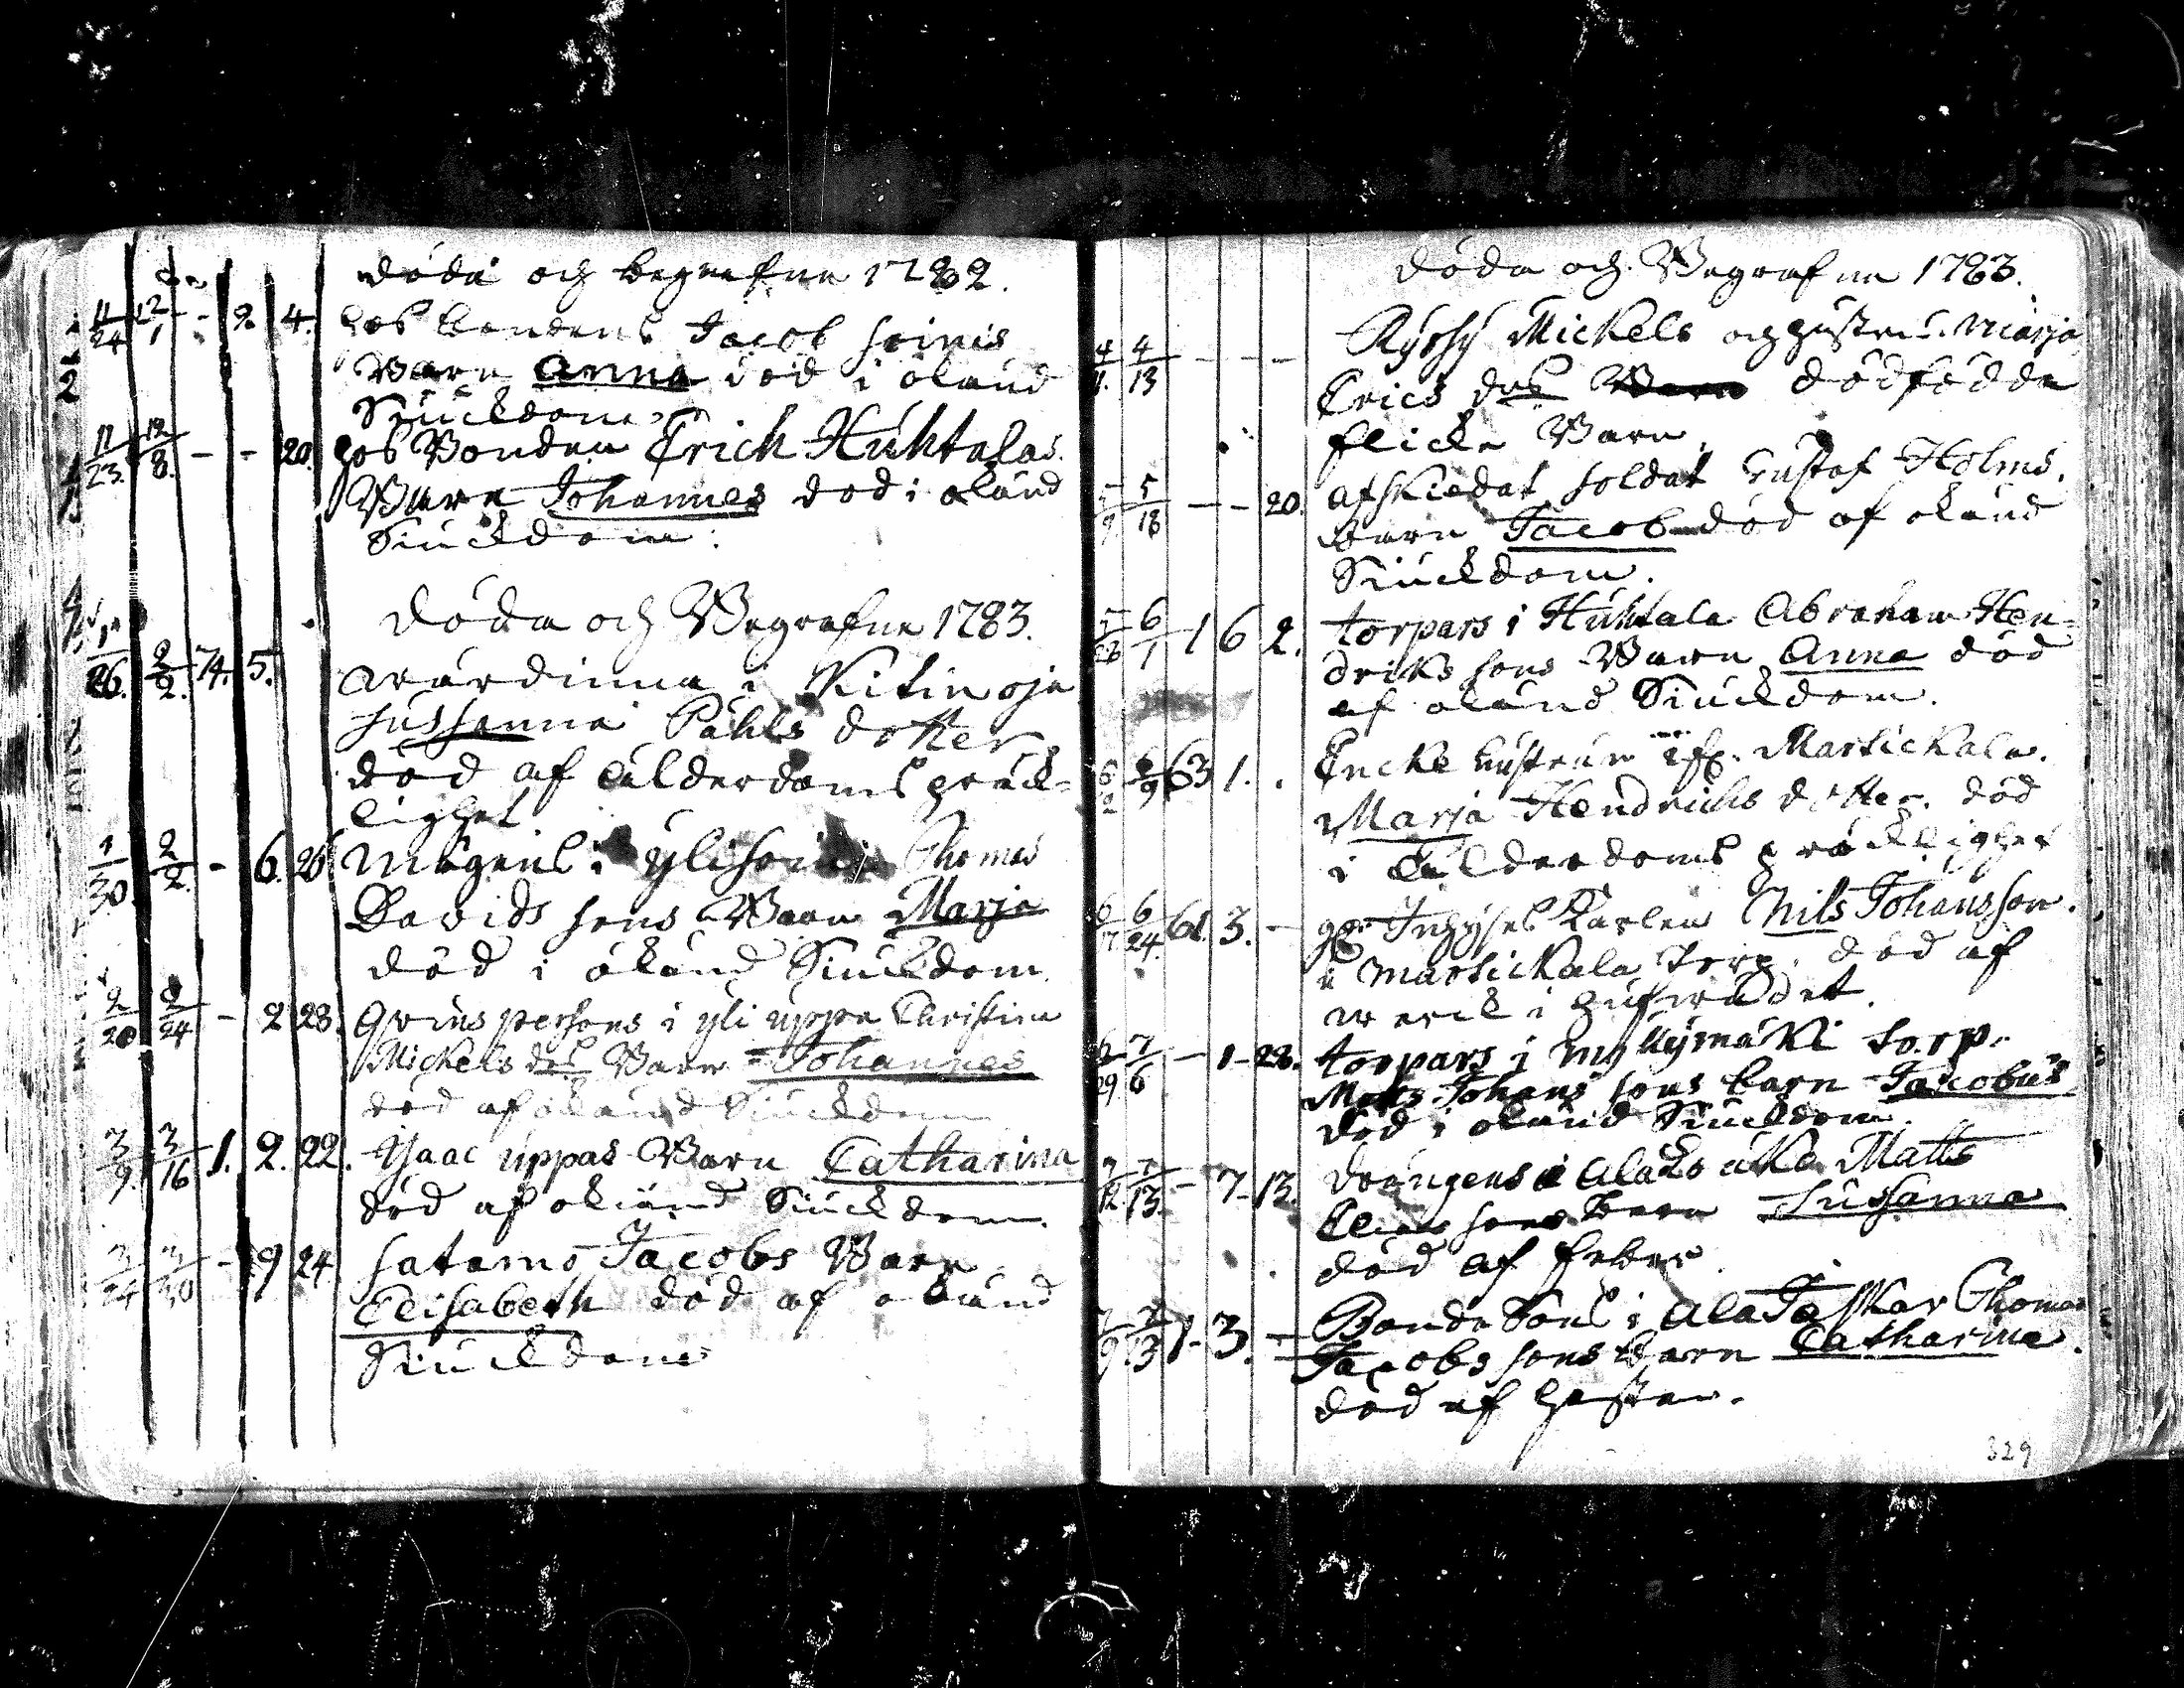 döda och begrafne 1782.
11/24 12/1 - 2. 4. hos bondens Jacob soinis
Barn Anna död i okänd
Siuckdom
11/23. 12/8. - - 20. hos Bonden Erich Huhtalas.
Barn Johannes död i okänd
Siuckdom.
Döda och Begrafne 1783.
1/26. 2/2. 74. 5. wärdinna i Kitinoja
Sussanna Påhls dotter
död af ålderdoms bräck=
lighet
1/30. 2/2. - 6. 26. mågens i ylisoini Thomas
Davids sons Barn Marja
död i okänd Siuckdom.
2/20 2/24 - 2 23. qvins persons i yli uppa Christina
Mickels drs Barn Johannes
död af okänd Siuckdom
3/9. 3/16 1. 2. 22. Isaac uppas Barn Catharina
död af okiänd Siuckdom.
3/24 3/30 - 9 24 satamo Jacobs Barn
Elisabeth död af okänd
Siuckdom
Döda och Begrafne 1783.
4/1. 4/13 - - - Ryssy Mickels och hustru Marja
Erics drs dödfödda
flicke Barn.
5/9. 5/18 - - 20. afskiedat soldat Gustaf Holms.
Barn Jacob död af okänd
Siuckdom.
5/26 6/1 1 6 2. torpars i Huhtala Abraham Hen=
driks sons Barn Anna död
af okänd Siuckdom.
6/2 6/9 63 1. . Encke hustrun Martickala.
Marja Hendrichs dotter. död
i ålderdoms bräcklighet
6/17 6/24. 61. 3. - Inhyses Karlen Nils Johansson.
i Martickala Torp. död af
werck i hufwudet.
6/29. 7/6 - 1 - 28. torpars i Myllymäki torp.
Matts Johans sons barn Jacobus
död i okänd Siuckdom.
7/12. 7/13. - 7 - 13. drängens i Matts
sons Barn Sussanna
död af feber.
7/9. 7/13 1 - 3. - Bonde Sons i Ala Thomas
Jacobs sons Barn Catharina.
död af hostan.
329